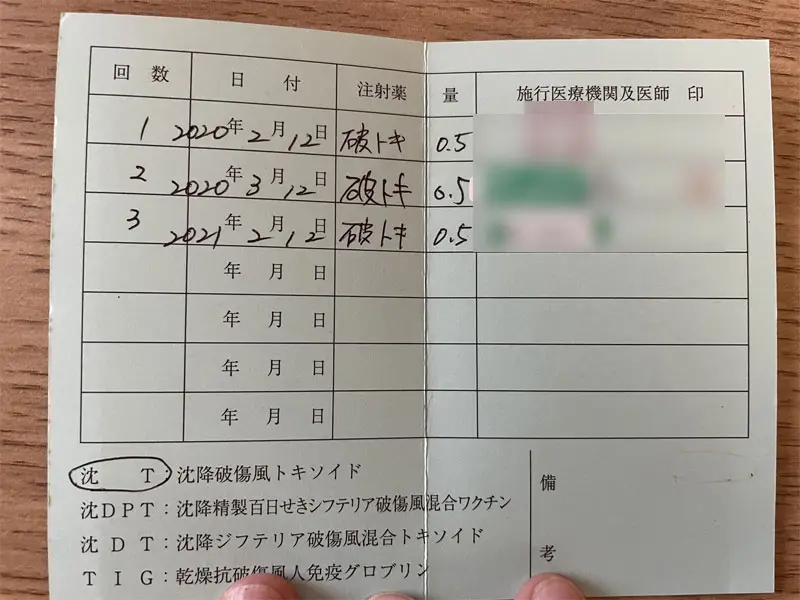 回 数 日 付 注射薬 量 施行医療機関及医師 印
1 2020年2月12日 破トキ 0.5
2 2020年3月12日 破トキ 0.5
3 2021年2月12日 破トキ 0.5
年 月 日
年 月 日
年 月 日
年 月 日
沈 T:沈降破傷風トキソイド
沈DPT:沈降精製百日せきシフテリア破傷風混合ワクチン
沈 D T:沈降ジフテリア破傷風混合トキソイド
T I G:乾燥抗破傷風人免疫グロブリン
備
考